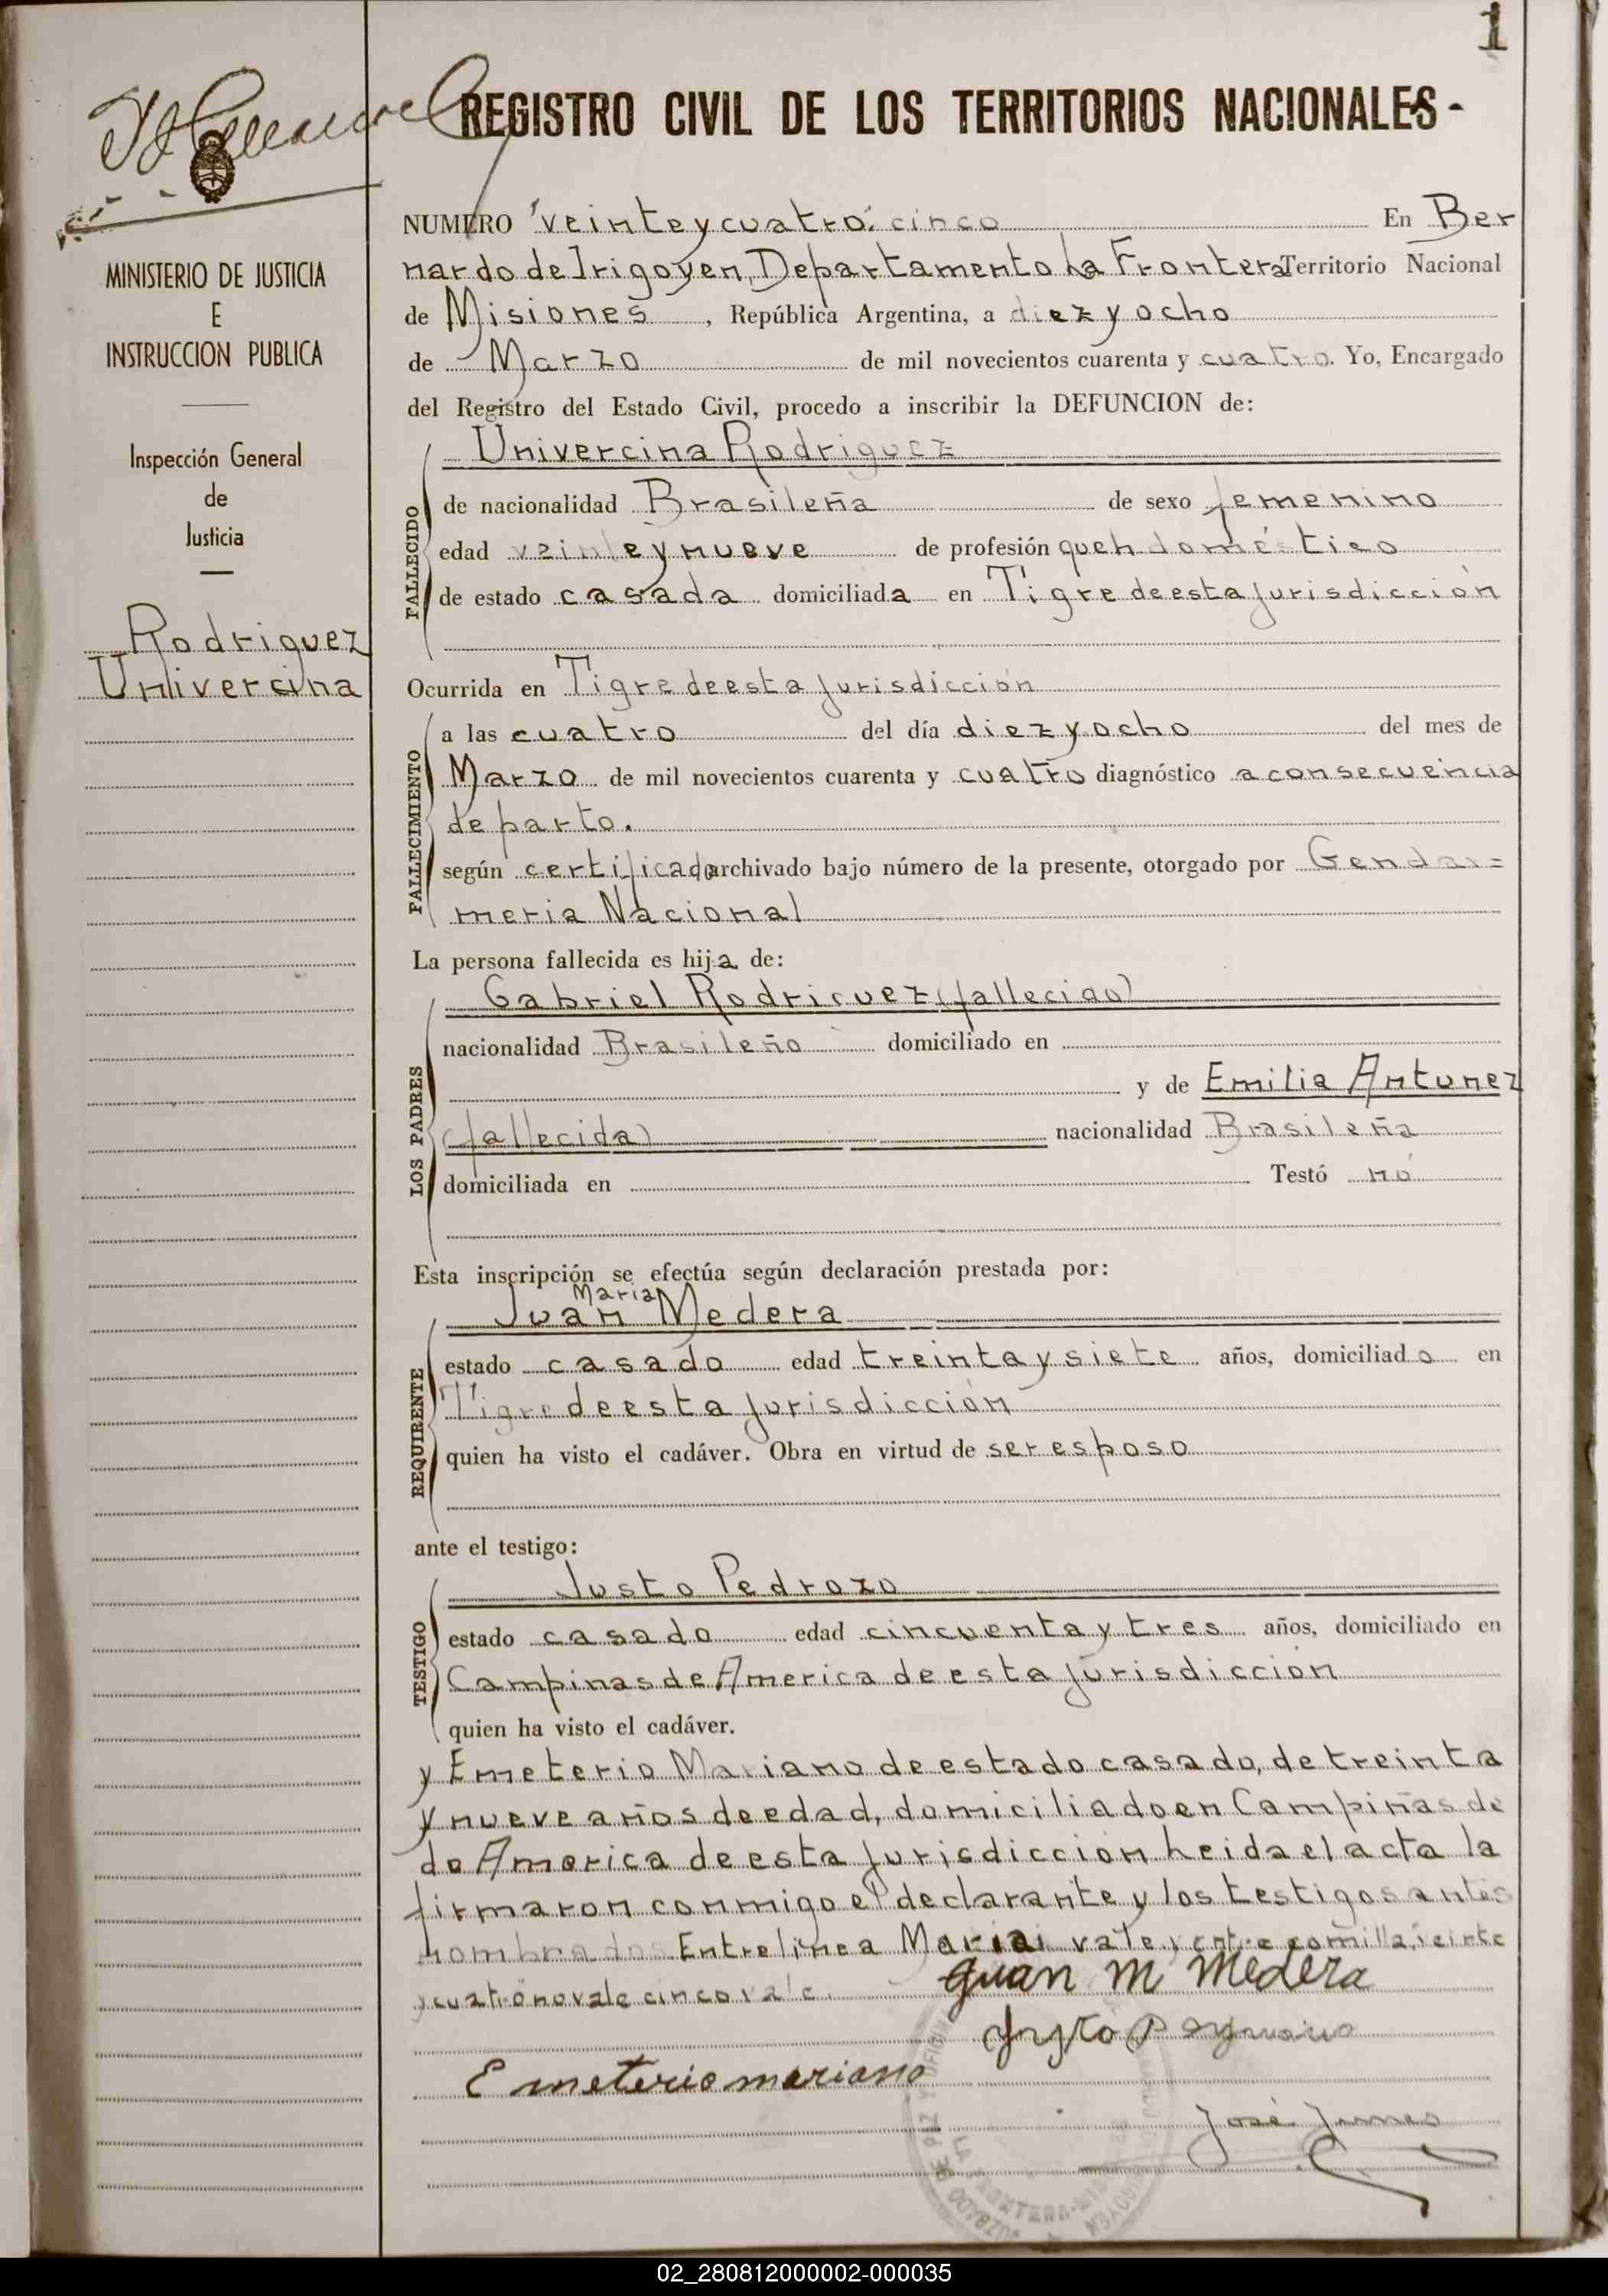 1
REGISTRO CIVIL DE LOS TERRITORIOS NACIONALES-
MINISTERIO DE JUSTICIA
E
INSTRUCCION PUBLICA
Inspección General
de
Justicia
Rodriguez
Univercina
NUMERO "veinteycuatro" cinco En Ber
nardo de Irigoyen, Departamento La Frontera Territorio Nacional
de Misiones, República Argentina, a diez y ocho
de Marzo de mil novecientos cuarenta y cuatro. Yo, Encargado
del Registro del Estado Civil, procedo a inscribir la DEFUNCION de:
Univercina Rodriguez
FALLECIDO
de nacionalidad Brasileña de sexo femenino
edad veinte y nueve de profesión queh doméstico
de estado casada domiciliada en Tigre de esta jurisdicción
Ocurrida en Tigre de esta jurisdicción
FALLECIMIENTO
a las cuatro del día diez y ocho del mes de
Marzo de mil novecientos cuarenta y cuatro diagnóstico a consecuencia
de parto.
según certificado archivado bajo número de la presente, otorgado por Gendar=
meria Nacional
La persona fallecida es hija de:
Gabriel Rodriguez (fallecido)
LOS PADRES
nacionalidad Brasileño domiciliado en
y de Emilia Antunez
(fallecida) nacionalidad Brasileña
domiciliada en Testó nó
Esta inscripción se efectúa según declaración prestada por:
Maria
Juan Medera
REQUIRENTE
estado casado edad treinta y siete años, domiciliado en
Tigre de esta jurisdicción
quien ha visto el cadáver. Obra en virtud de ser esposo
ante el testigo:
Justo Pedrozo
TESTIGO
estado casado edad cincuenta y tres años, domiciliado en
Campinas de America de esta jurisdiccion
quien ha visto el cadáver.
y Emeterio Mariano de estado casado, de treinta
y nueve años de edad, domiciliado en Campiñas de
de America de esta jurisdicción leida el acta la
firmaron conmigo el declarante y los testigos antes
nombrados Entrelinea Maria vale, y entre comilla veinte
y cuatro no vale cinco vale.
Juan M Medera
Emeterio mariano
José
02_280812000002-000035